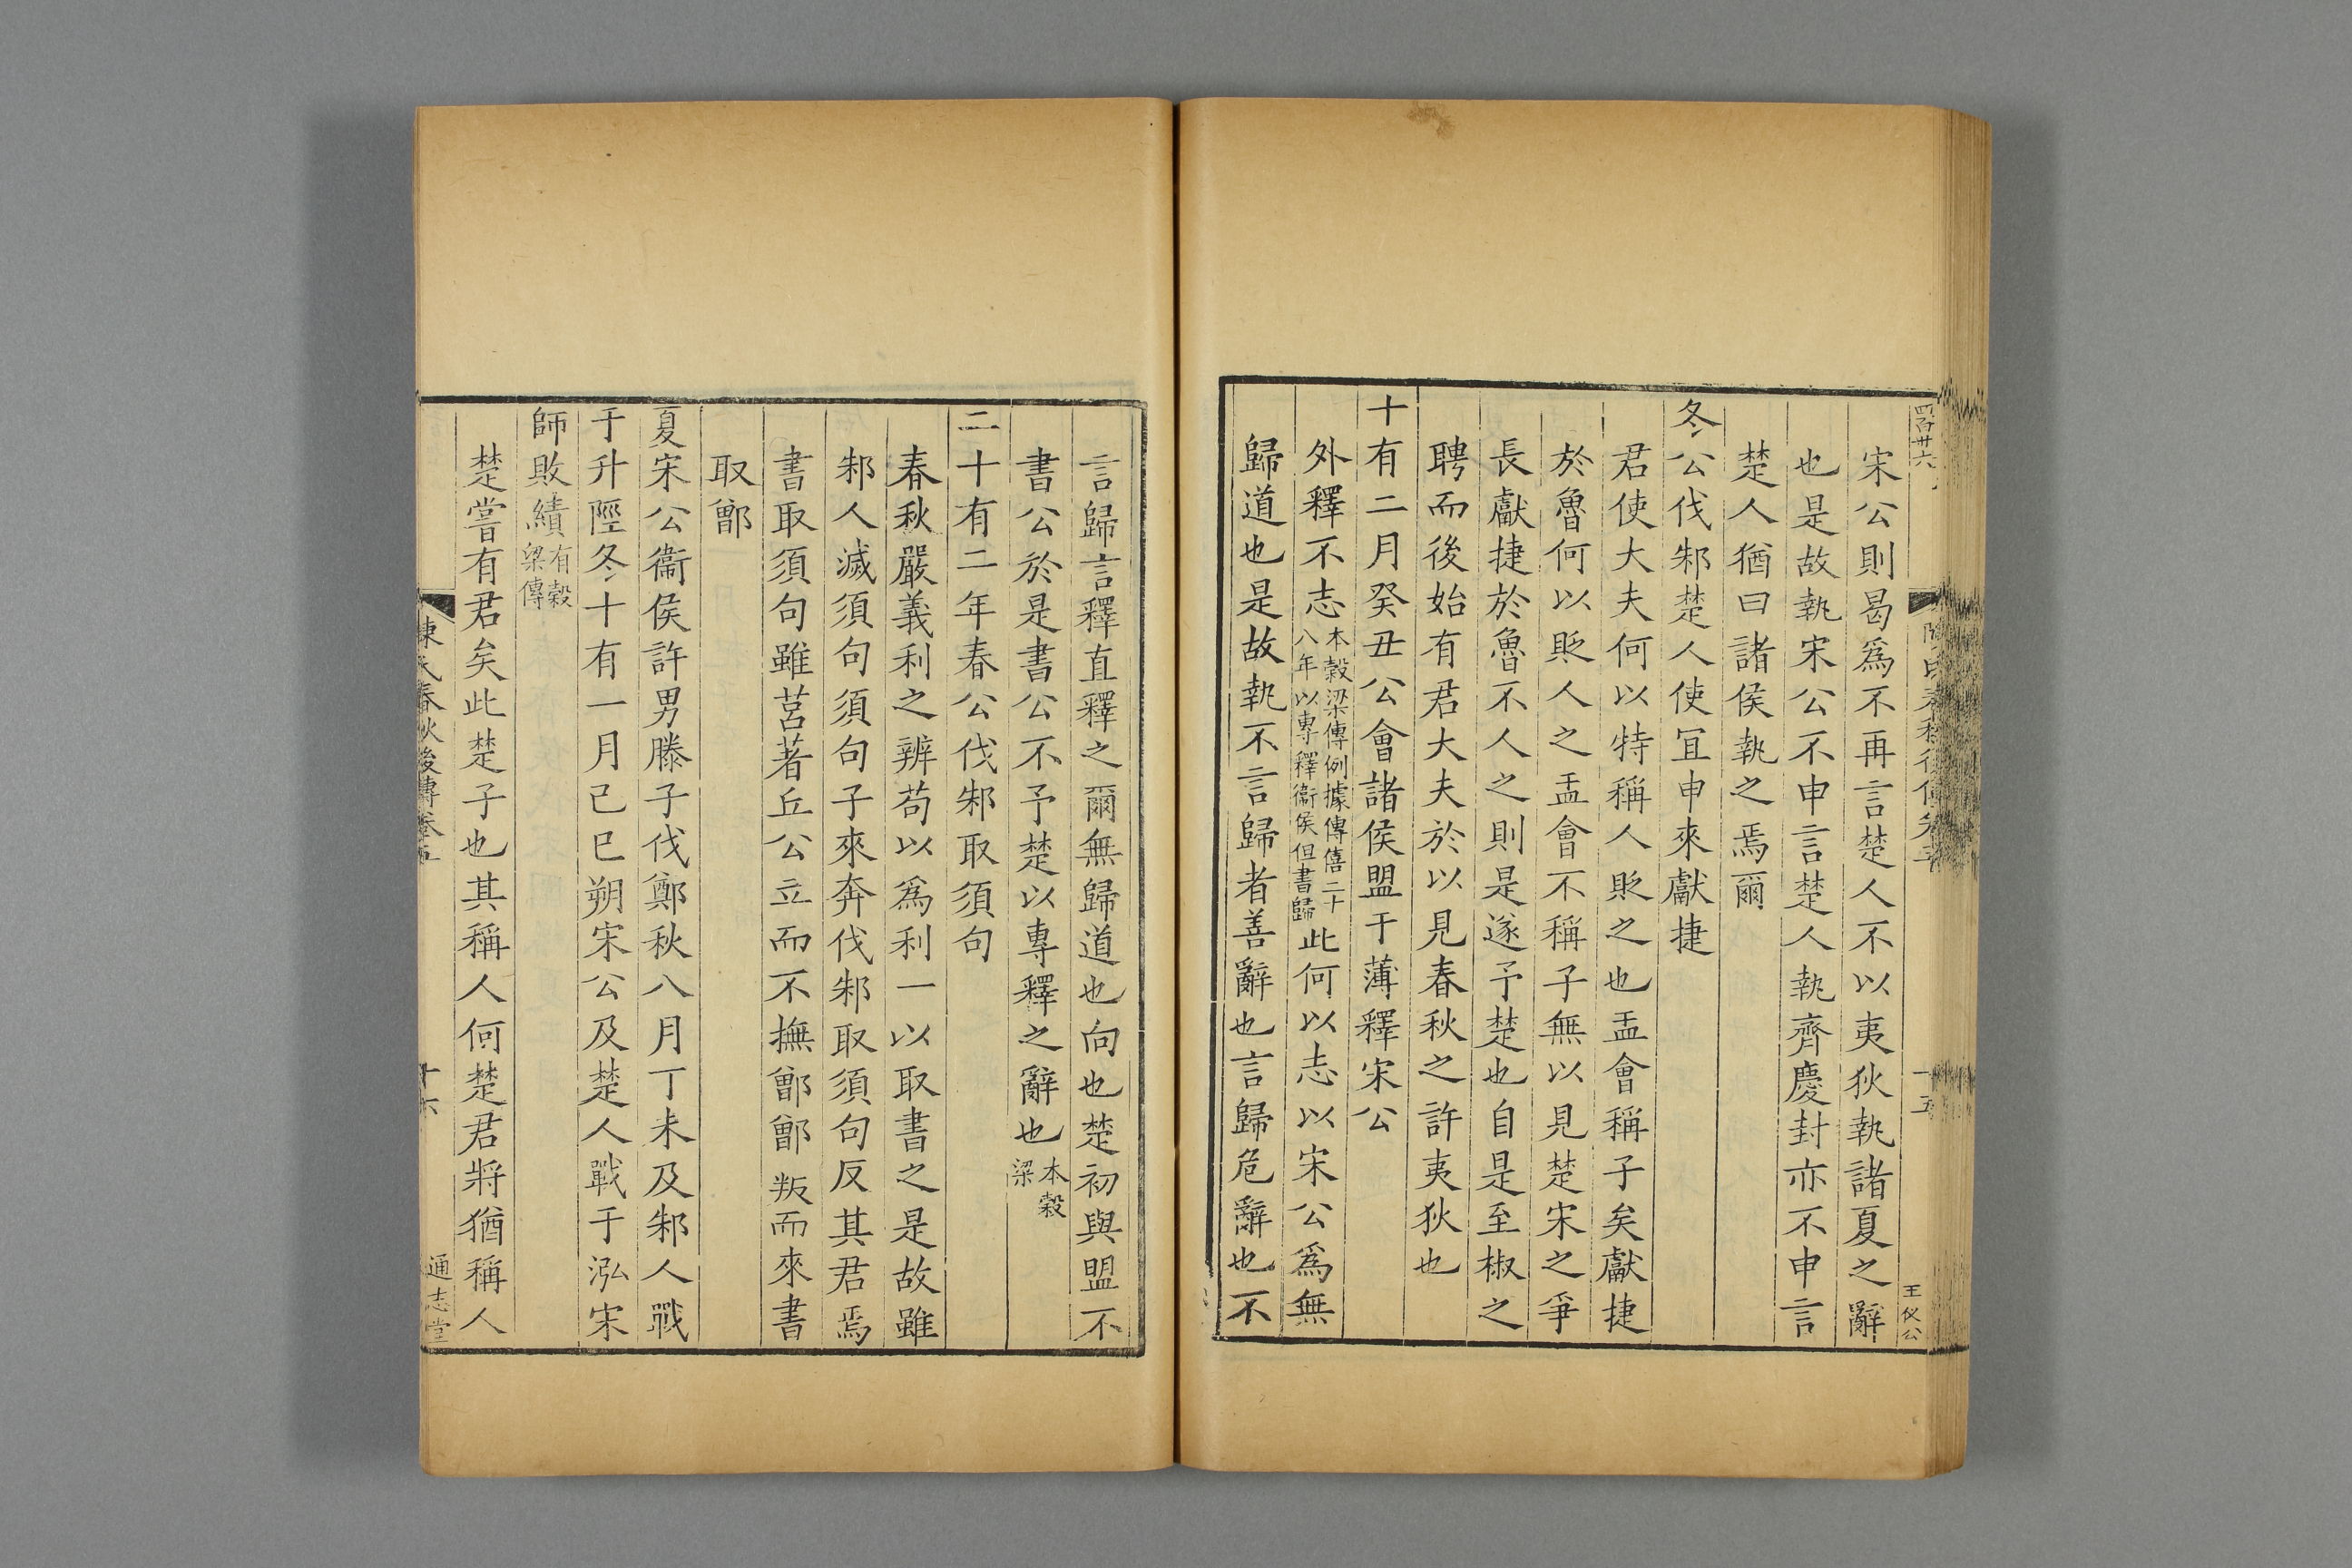 宋公則曷爲不再言楚人不以夷狄執諸夏之辭
也是故執宋公不申言楚人執齊慶封亦不申言
楚人猶曰諸侯執之焉爾
冬公伐邾楚人使宜申來獻捷
君使大夫何以特稱人貶之也盂會稱子矣獻捷
於魯何以貶人之盂會不稱子無以見楚宋之爭
長獻捷於魯不人之則是遂予楚也自是至椒之
聘而後始有君大夫於以見春秋之許夷狄也
十有二月癸丑公會諸侯盟于薄釋宋公
外釋不志本穀梁傳例據傳僖二十八年以專釋衞侯但書歸此何以志以宋公爲無
歸道也是故執不言歸者善辭也言歸危辭也不
言歸言釋直釋之爾無歸道也向也楚初與盟不
書公於是書公不予楚以專釋之辭也本穀梁
二十有二年春公伐邾取須句
春秋嚴義利之辨苟以爲利一以取書之是故雖
邾人滅須句須句子來奔伐邾取須句反其君焉
書取須句雖莒著丘公立而不撫鄫鄫叛而來書
取鄫
夏宋公衞侯許男滕子伐鄭秋八月丁未及邾人戰
于升陘冬十有一月己巳朔宋公及楚人戰于泓宋
師敗績有穀梁傳
楚嘗有君矣此楚子也其稱人何楚君將猶稱人
陳氏春秋後傳卷五
十六
通志堂